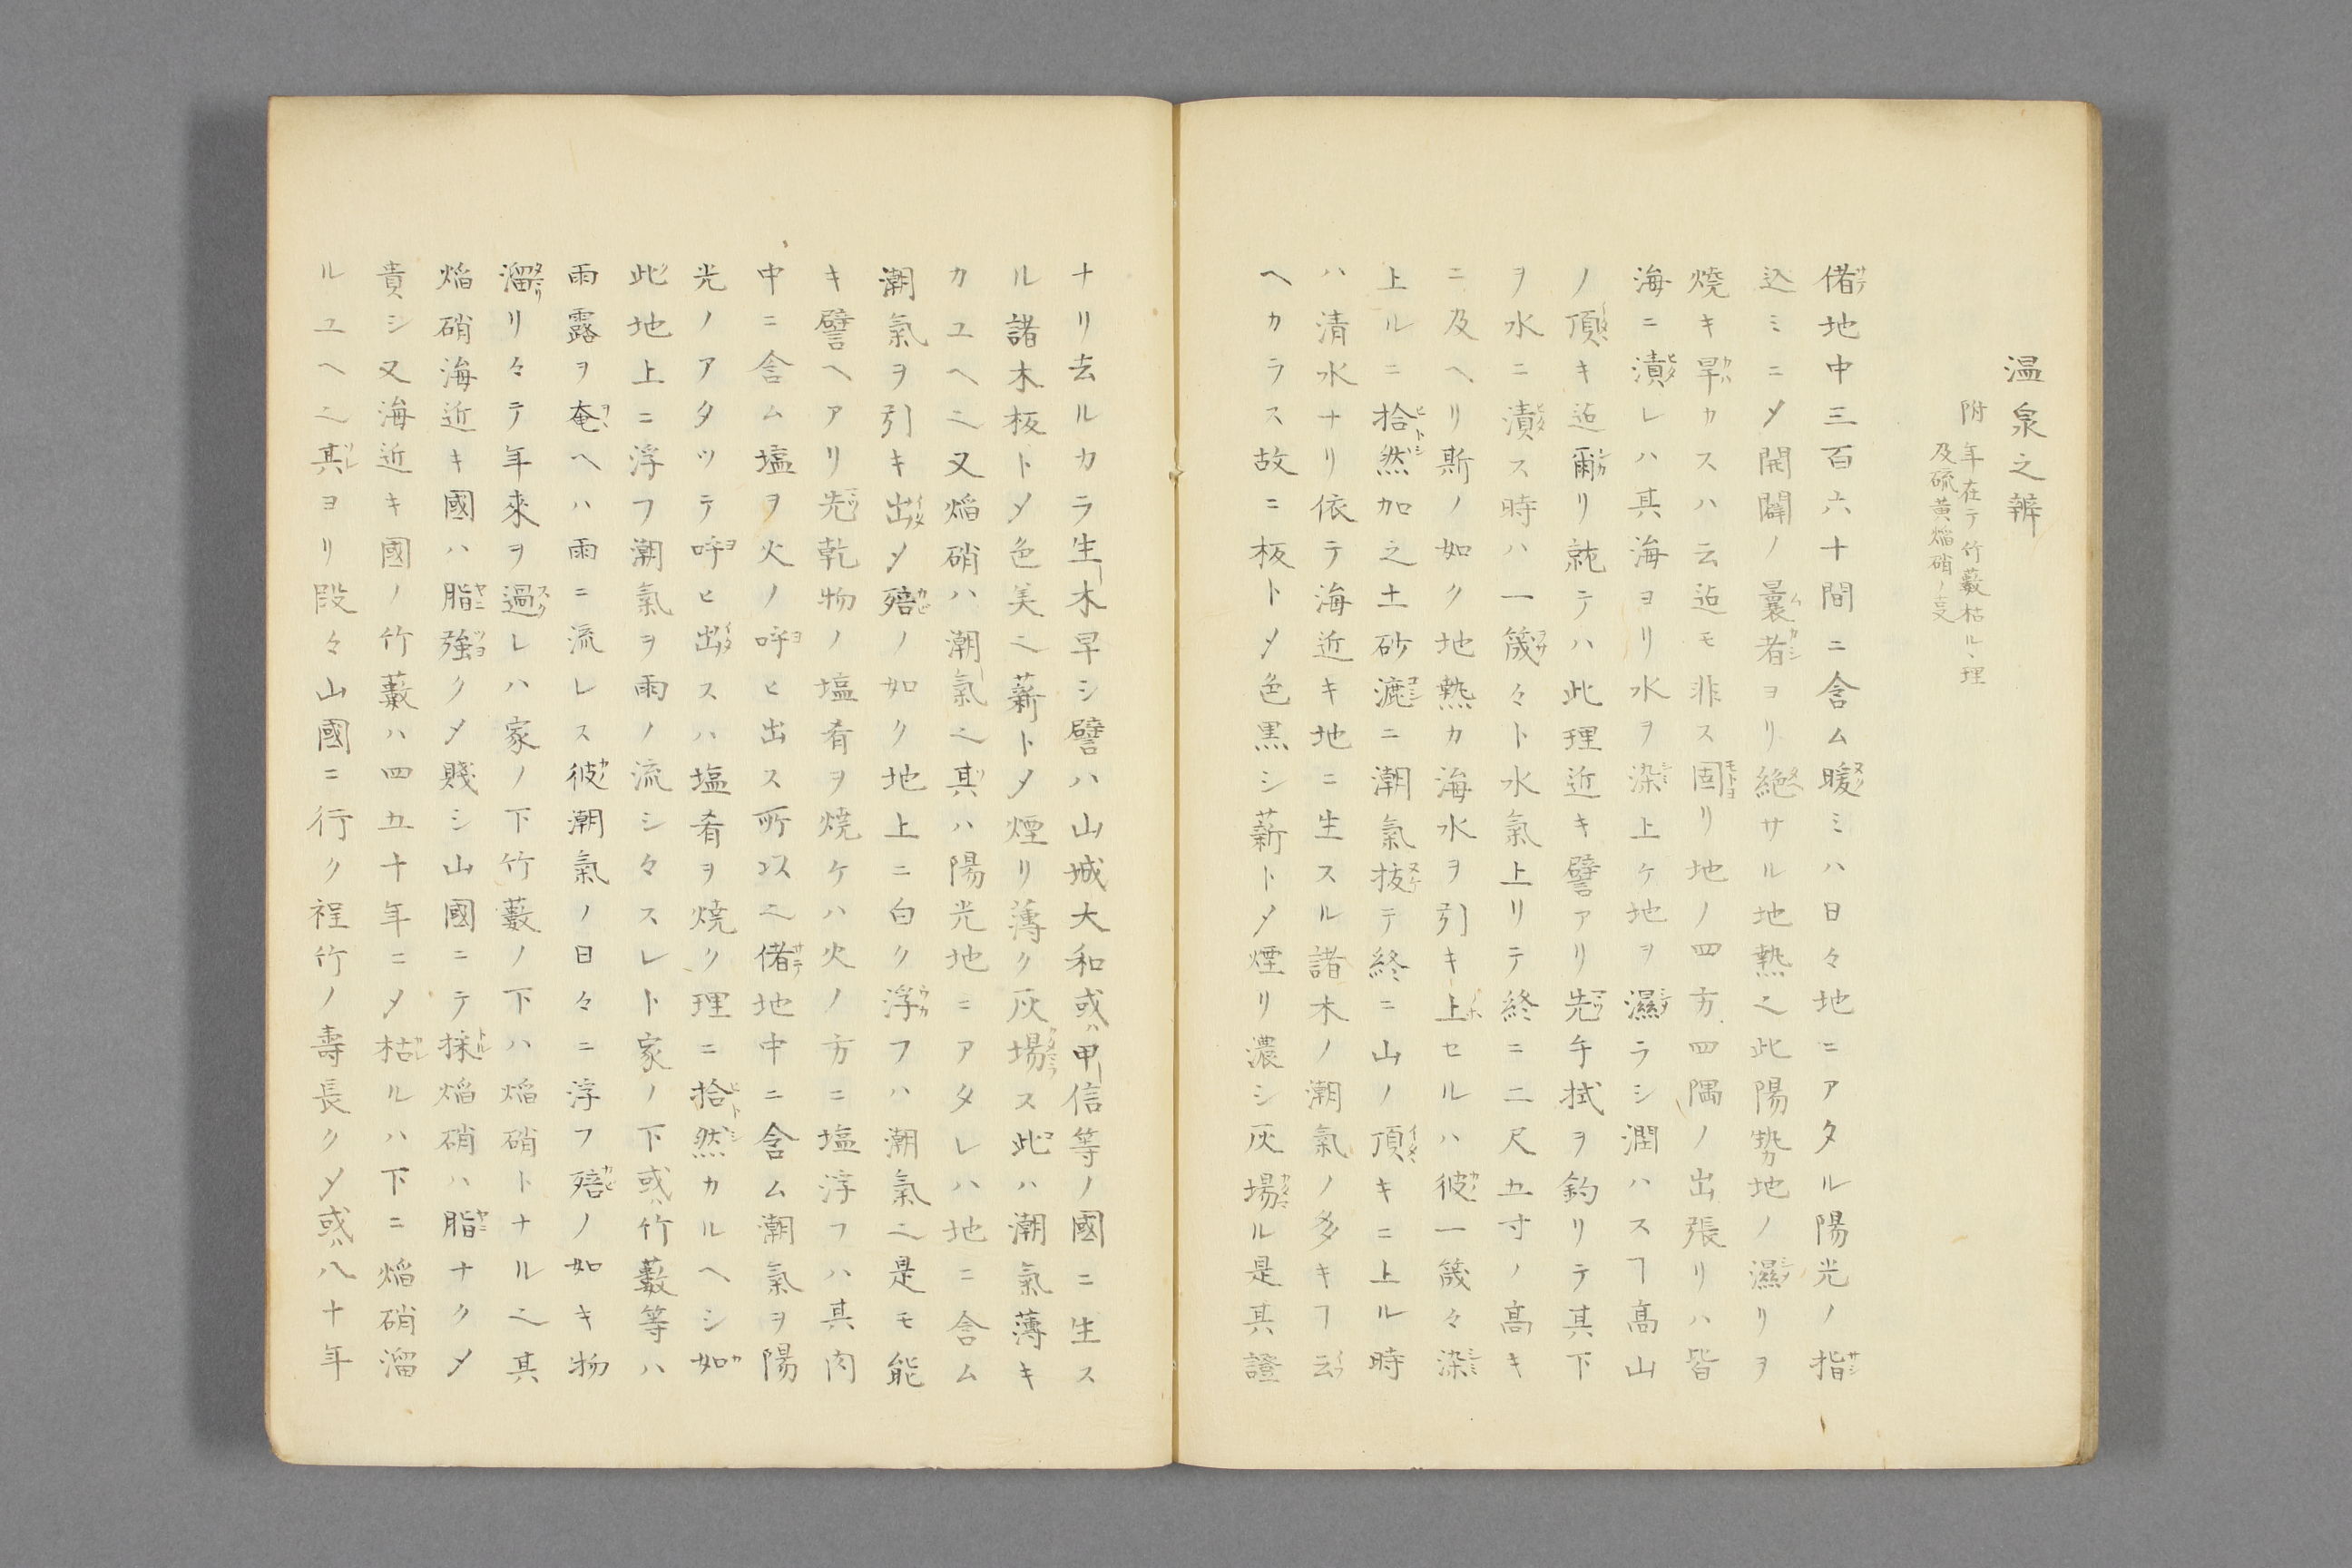 温泉之辨
附 年在テ竹藪枯ルヽ理
及硫黄焔硝ノ㕝
偖地中三百六十間ニ含ム暖ミハ日々地ニアタル陽光ノ指
込ミニ〆開闢ノ曩者ヨリ絶サル地熱也此陽勢地ノ濕リヲ
焼キ旱カスハ云迠モ非ス固リ地ノ四方四隅ノ出張リハ皆
海ニ漬レハ其海ヨリ水ヲ染上ケ地ヲ濕ラシ潤ハスヿ髙山
ノ頂キ迠爾リ就テハ此理近キ譬アリ先手拭ヲ釣リテ其下
ヲ水ニ漬ス時ハ一筬々ト水氣上リテ終ニ二尺五寸ノ髙キ
ニ及ヘリ斯ノ如ク地熱カ海水ヲ引キ上セルハ彼一筬々染
上ルニ拾然加之土砂漉ニ潮氣抜テ終ニ山ノ頂キニ上ル時
ハ清水ナリ依テ海近キ地ニ生スル諸木ノ潮氣ノ多キヿ云
ヘカラス故ニ板ト〆色黒シ薪ト〆煙リ濃シ灰場ル是其證
ナリ去ルカラ生木早シ譬ハ山城大和或ハ甲信等ノ國ニ生ス
ル諸木板ト〆色美也薪ト〆煙リ薄ク灰場ス此ハ潮氣薄キ
カユヘ也又焔硝ハ潮氣也其ハ陽光地ニアタレハ地ニ含ム
潮氣ヲ引キ出〆殕ノ如ク地上ニ白ク浮フハ潮氣也是モ能
キ譬ヘアリ先乾物ノ塩肴ヲ焼ケハ火ノ方ニ塩浮フハ其肉
中ニ含ム塩ヲ火ノ呼ヒ出ス所以也偖地中ニ含ム潮氣ヲ陽
光ノアタツテ呼ヒ出スハ塩肴ヲ焼ク理ニ拾然カルヘシ如
此地上ニ浮フ潮氣ヲ雨ノ流シ々スレト家ノ下或ハ竹藪等ハ
雨露ヲ奄ヘハ雨ニ流レス彼潮氣ノ日々ニ浮フ殕ノ如キ物
溜リ々テ年來ヲ過レハ家ノ下竹藪ノ下ハ焔硝トナル也其
焔硝海近キ國ハ脂強ク〆賤シ山國ニテ採焔硝ハ脂ナク〆
貴シ又海近キ國ノ竹藪ハ四五十年ニ〆枯ルハ下ニ焔硝溜
ルユヘ也其ヨリ段々山國ニ行ク程竹ノ壽長ク〆或ハ八十年